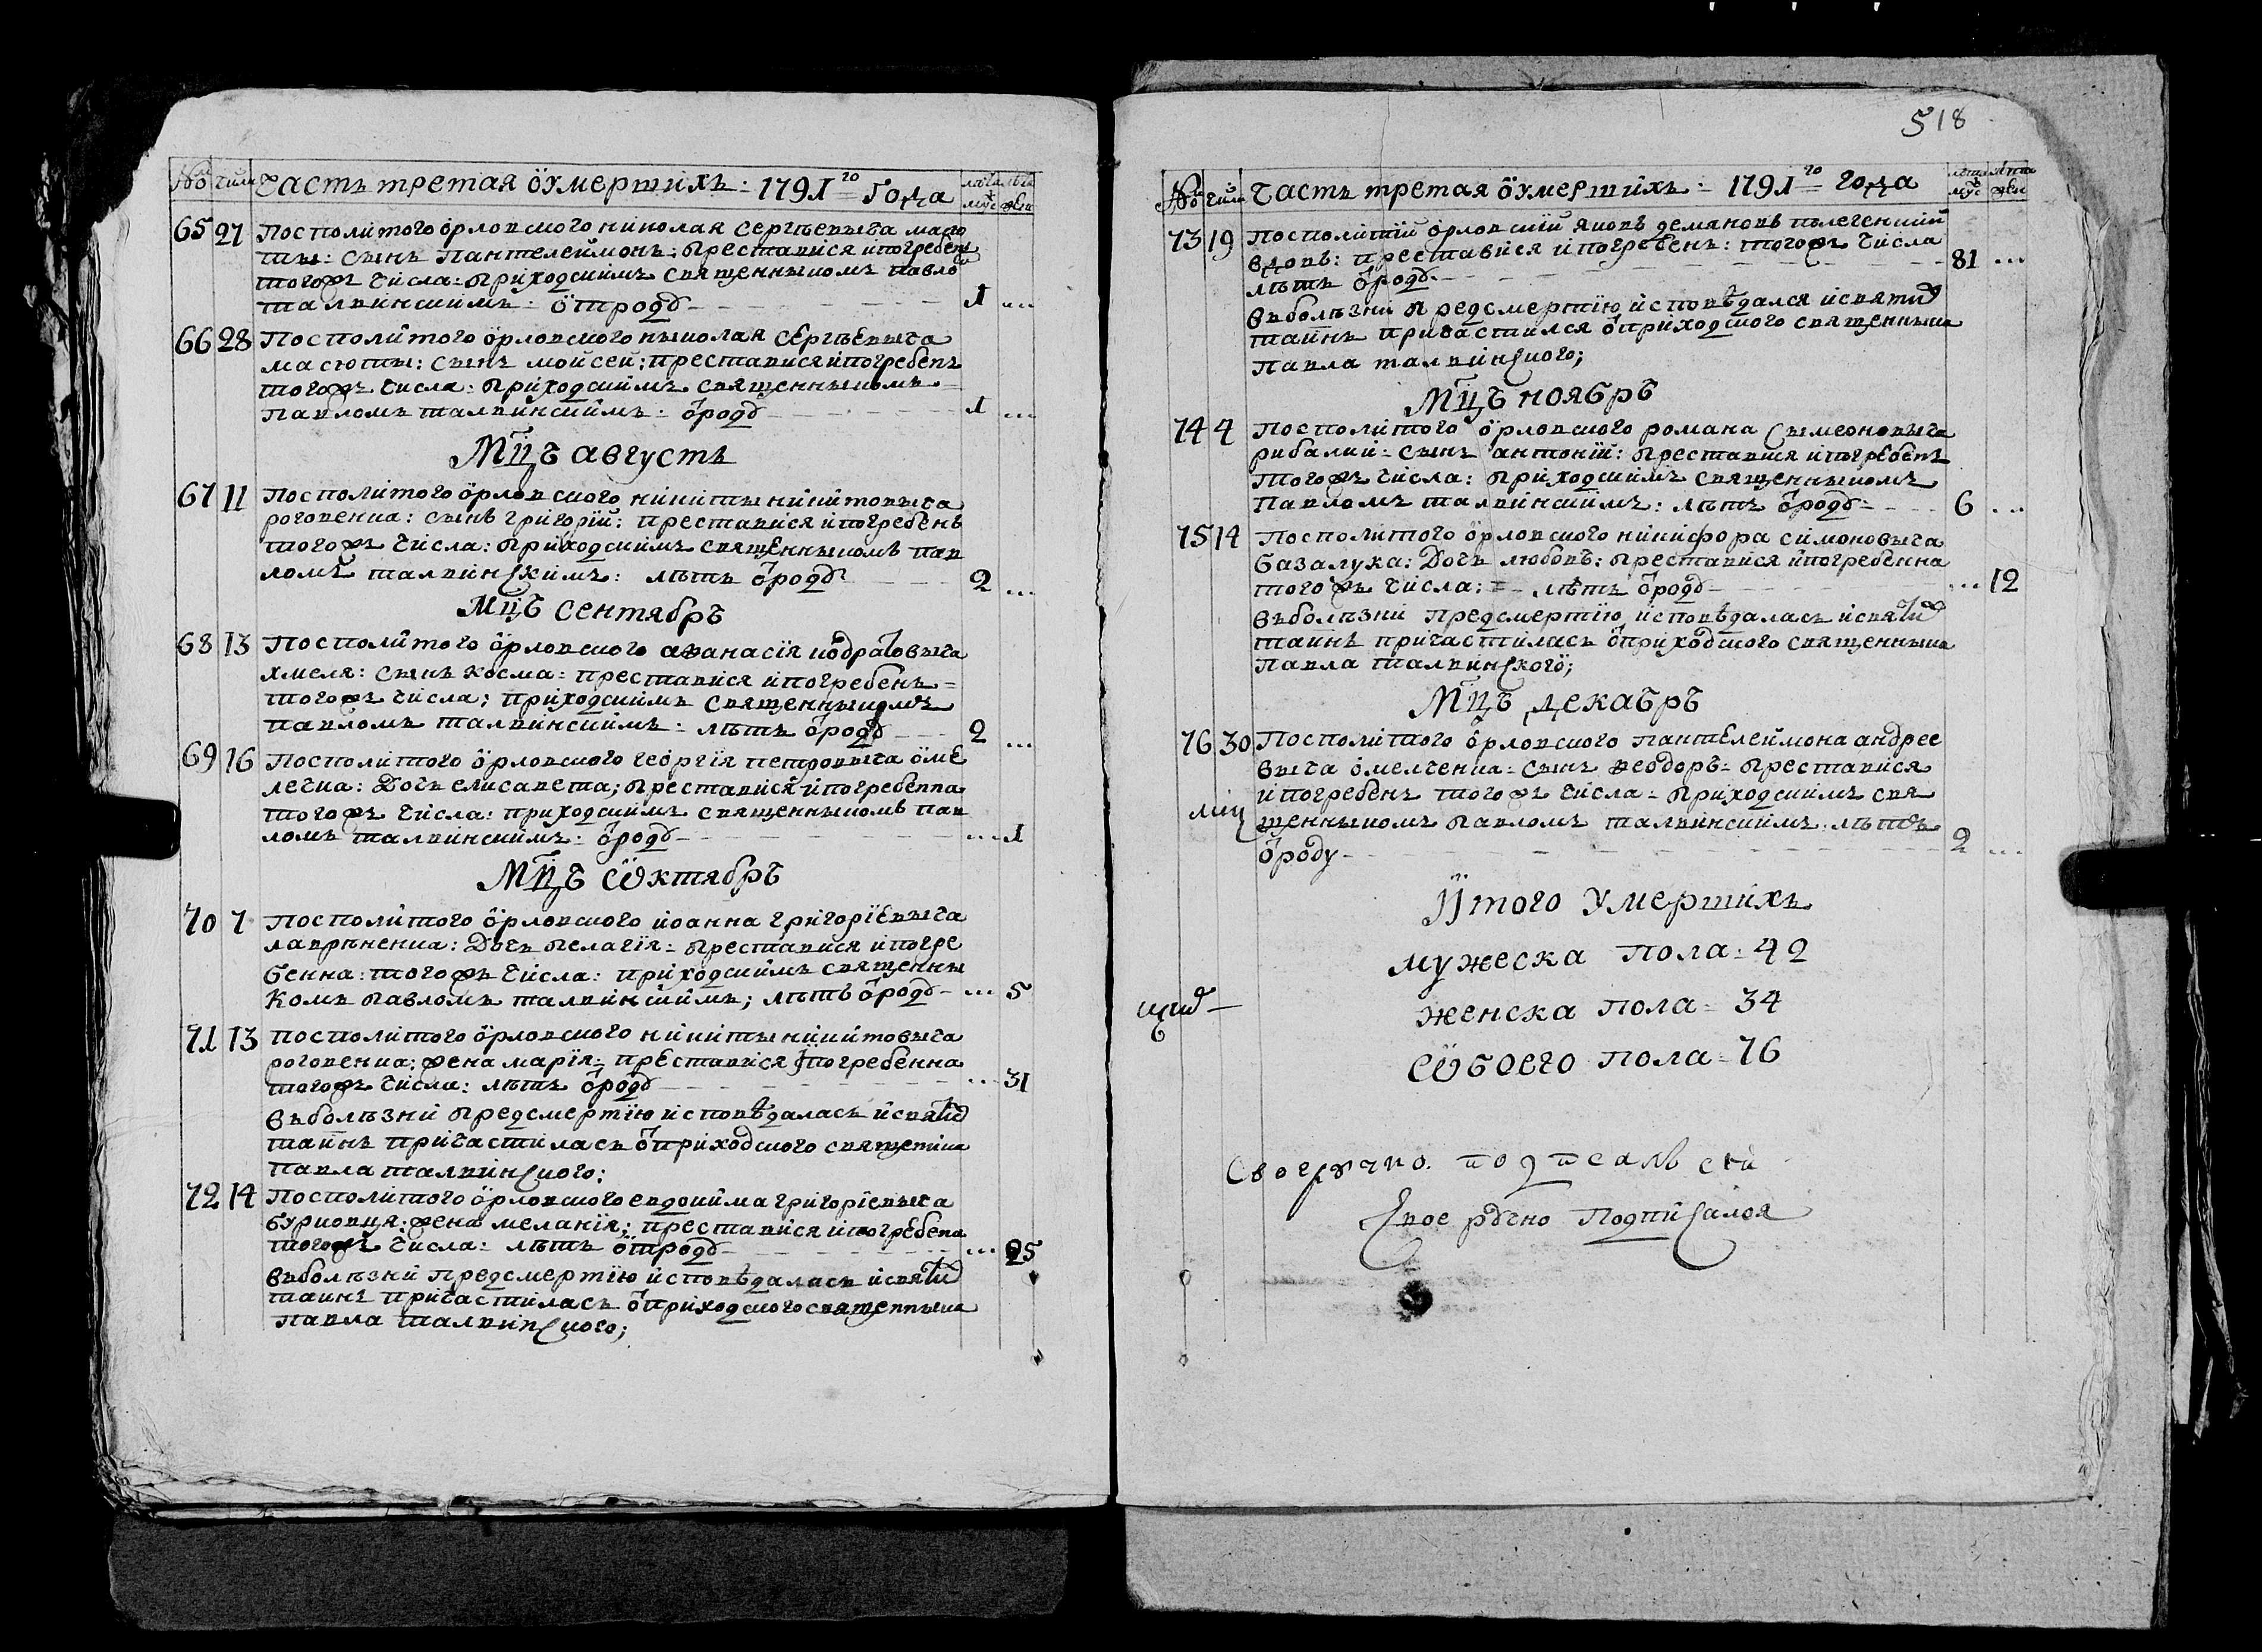 № числ Часть третая о умертихъ: 1791 го года лѣта муж лѣта жен
65 27 Посполитого орловского николая сергѣевыча масю
ты: сынъ Пантелеймонъ: преставися и погребенъ
того жъ числа: приходскимъ священныкомъ павло
талвинскимъ: отроду 1 ...
66 28 Посполитого орловского ныколая сергѣевыча
масюты: сынъ мойсей: преставися и погребенъ
того жъ числа: приходскимъ священныкомъ
Павломъ талвинскимъ: ѿроду 1 ...
Мцъ августъ
67 11 Посполитого орловского никиты никитовыча
роговенка: сынъ григорій: преставися и погребенъ
того жъ числа: приходскимъ священныкомъ пав
ломъ талвинскимъ: лѣтъ ѿроду 2 ...
Мцъ сентябръ
68 13 Посполитого орловского аѳанасія кодратовыча
хмеля: сынъ косма: преставися и погребенъ
того жъ числа; приходскимъ священныкомъ
павломъ талвинскимъ: лѣтъ ѿроду 2 ...
69 16 Посполитого орловского георгія петровыча оме
лечка: Дочъ елисавета; преставися и погребенна
того жъ числа: приходскимъ священныкомъ пав
ломъ талвинскимъ: ѿроду ... 1
Мцъ Ѡктябръ
70 7 Посполитого орловского иоанна григорїевыча
лаврѣненка: Дочъ пелагїя: преставися и погре
бенна: того жъ числа: приходскимъ священны
Комъ павломъ талвинскимъ; лѣтъ ѿроду ... 5
71 13 посполитого орловского никиты никитовыча
роговенка: жена марїя: преставися и погребенна
того жъ числа: лѣтъ ѿроду ... 31
въ болѣзни предсмертїю исповѣдалась и святих
таинъ причастилась ѿ приходского священика
павла талвинского:
72 14 Посполитого орловского евдокима григорїевыча
бурковця: жена меланїя: преставися и погребена
того жъ числа: лѣтъ ѿтроду ... 25
въ болѣзни предсмертїю исповѣдалась и святих
таинъ причастилась ѿ приходского священныка
павла талвинского;
518
№ числ Часть третая о умертихъ: 1791 го года лѣта муж лѣта жен
73 19 Посполитий орловский яковъ демяновъ пѣлегенкий
вдовъ: преставися и погребенъ: того жъ числа
лѣтъ ѿроду 81 ...
въ болѣзни предсмертїю исповѣдался и святих
таинъ причастился ѿ приходского священныка
Павла талвинского;
Мцъ ноябръ
74 4 Посполитого орловского романа сымеоновыча
рибалки: сынъ антоній: преставися и погребенъ
того жъ числа: приходскимъ священныкомъ
Павломъ талвинскимъ: лѣтъ ѿроду 6 ...
75 14 Посполитого орловского никифора симоновыча
базалука: Дочъ любовъ: преставися и погребенна
того жъ числа: лѣтъ ѿроду ... 12
въ болѣзни предсмертїю исповѣдалась и святих
таинъ причастилась ѿ приходского священныка
Павла талвинского;
Мцъ декабръ
76 30 Посполитого орловского пантелеймона андрее
выча омелченка: сынъ ѳеодоръ: преставися
и погребенъ того жъ числа: приходскимъ свя
щенныкомъ павломъ талвинскимъ: лѣтъ
ѿроду 2 ...
Итого умертихъ
мужеска пола: 42
женска пола: 34
Ѡбоего пола: 76
Своеручно подписалъ
Своеручно Подписался